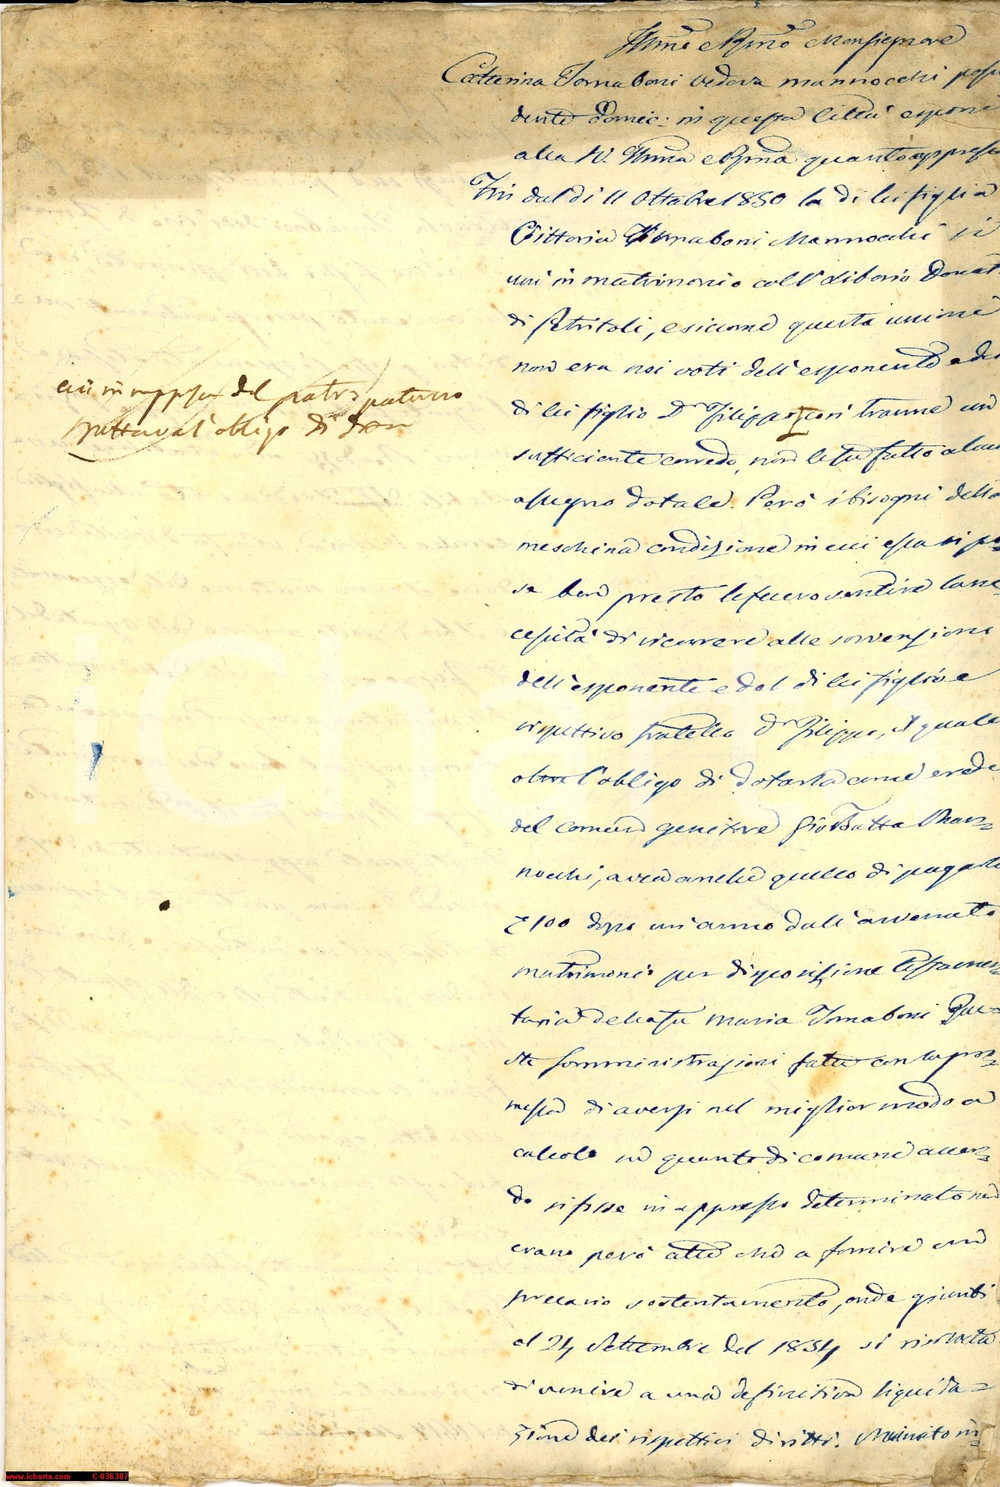 Illmo e Rmo Monsignore
Catterina Tornaboni vedova Mannocchi possi
dente domic: in questa Città espone
alla V. Illma e Rma quanto appresso
Fin dal dì 11 Ottobre 1830 la di lei figlia
Vittoria Tornaboni Mannocchi si
unì in matrimonio coll' Liborio Donat
di Petritoli, e siccome questa unione
non era nei voti dell'esponente e del
di lei figlio Dr Filippo così tranne un
sufficiente corredo, non le fu fatto alcun
assegno dotale. Però i bisogni della
meschina condizione in cui essa si po=
se ben presto le fecero sentire la ne
cessità di ricorrere alle sovvenzioni
dell'esponente e del di lei figlio e
rispettivo fratello Dr Filippo, il quale
oltre l'obligo di dotarla come erede
del comune genitore Gio Batta Man=
nocchi, avea anche quello di pagarle
100 dopo un anno dall'avvenuto
matrimonio per disposizione testamen=
taria della fu Maria Tornaboni Que=
ste somministrazioni fatte con la pro=
messa di aversi nel miglior modo a
calcolo in quanto di comune accor=
do si fosse in appresso determinato non
erano però atte che a fornire un
precario sostentamento, onde giunti
al 24 Settembre del 1834 si risolvette
di venire a una definitiva liquida=
zione dei rispettivi diritti. Riunito in=
del patrio paterno
l'obligo di
www.icharta.com C-036307